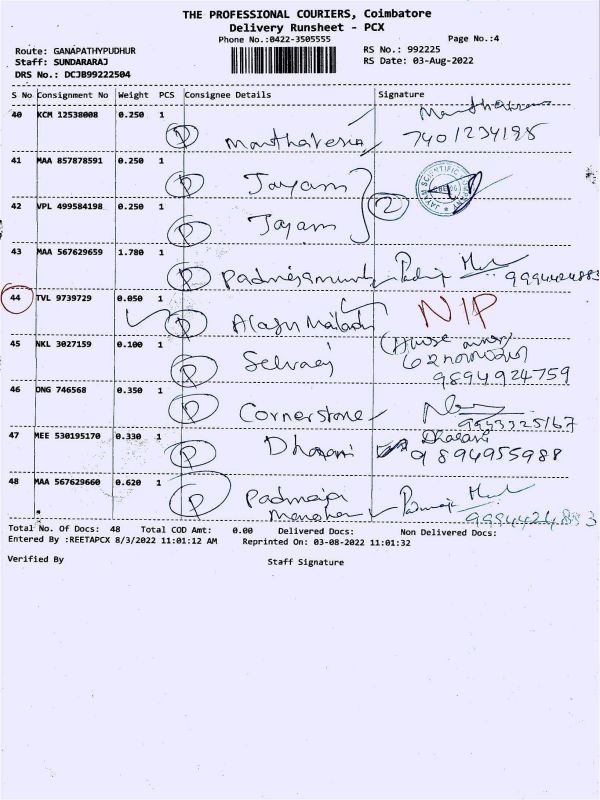 THE PROFESSIONAL COURIERS, Coimbatore
Delivery Runsheet - PCX
Phone No.:0422-3505555
Page No.:4
Route: GANAPATHYPUDHUR
RS No.: 992225
Staff: SUNDARARAJ
RS Date: 03-Aug-2022
DRS No.: DCJB99222504
S No Consignment No Weight PCS Consignee Details Signature
40 KCM 12538008 0.250 1
P 7401234195
41 MAA 857878591 0.250 1
P Jayam 2
42 VPL 499584198 0.250 1
P Jayam
43 MAA 567629659 1.780 1
P 9994424883
44 TVL 9739729 0.050 1 NIP
P
45 NKL 3027159 0.100 1
P Selvaraj
9894924759
46 DNG 746568 0.350 1
P Cornerstone 9943325167
47 MEE 530195170 0.330 1
P Dharani Dharani 9894955988
48 MAA 567629660 0.620 1
P Padmaja
Manohar 9994424883
Total No. Of Docs: 48 Total COD Amt: 0.00 Delivered Docs: Non Delivered Docs:
Entered By :REETAPCX 8/3/2022 11:01:12 AM Reprinted On: 03-08-2022 11:01:32
Verified By
Staff Signature